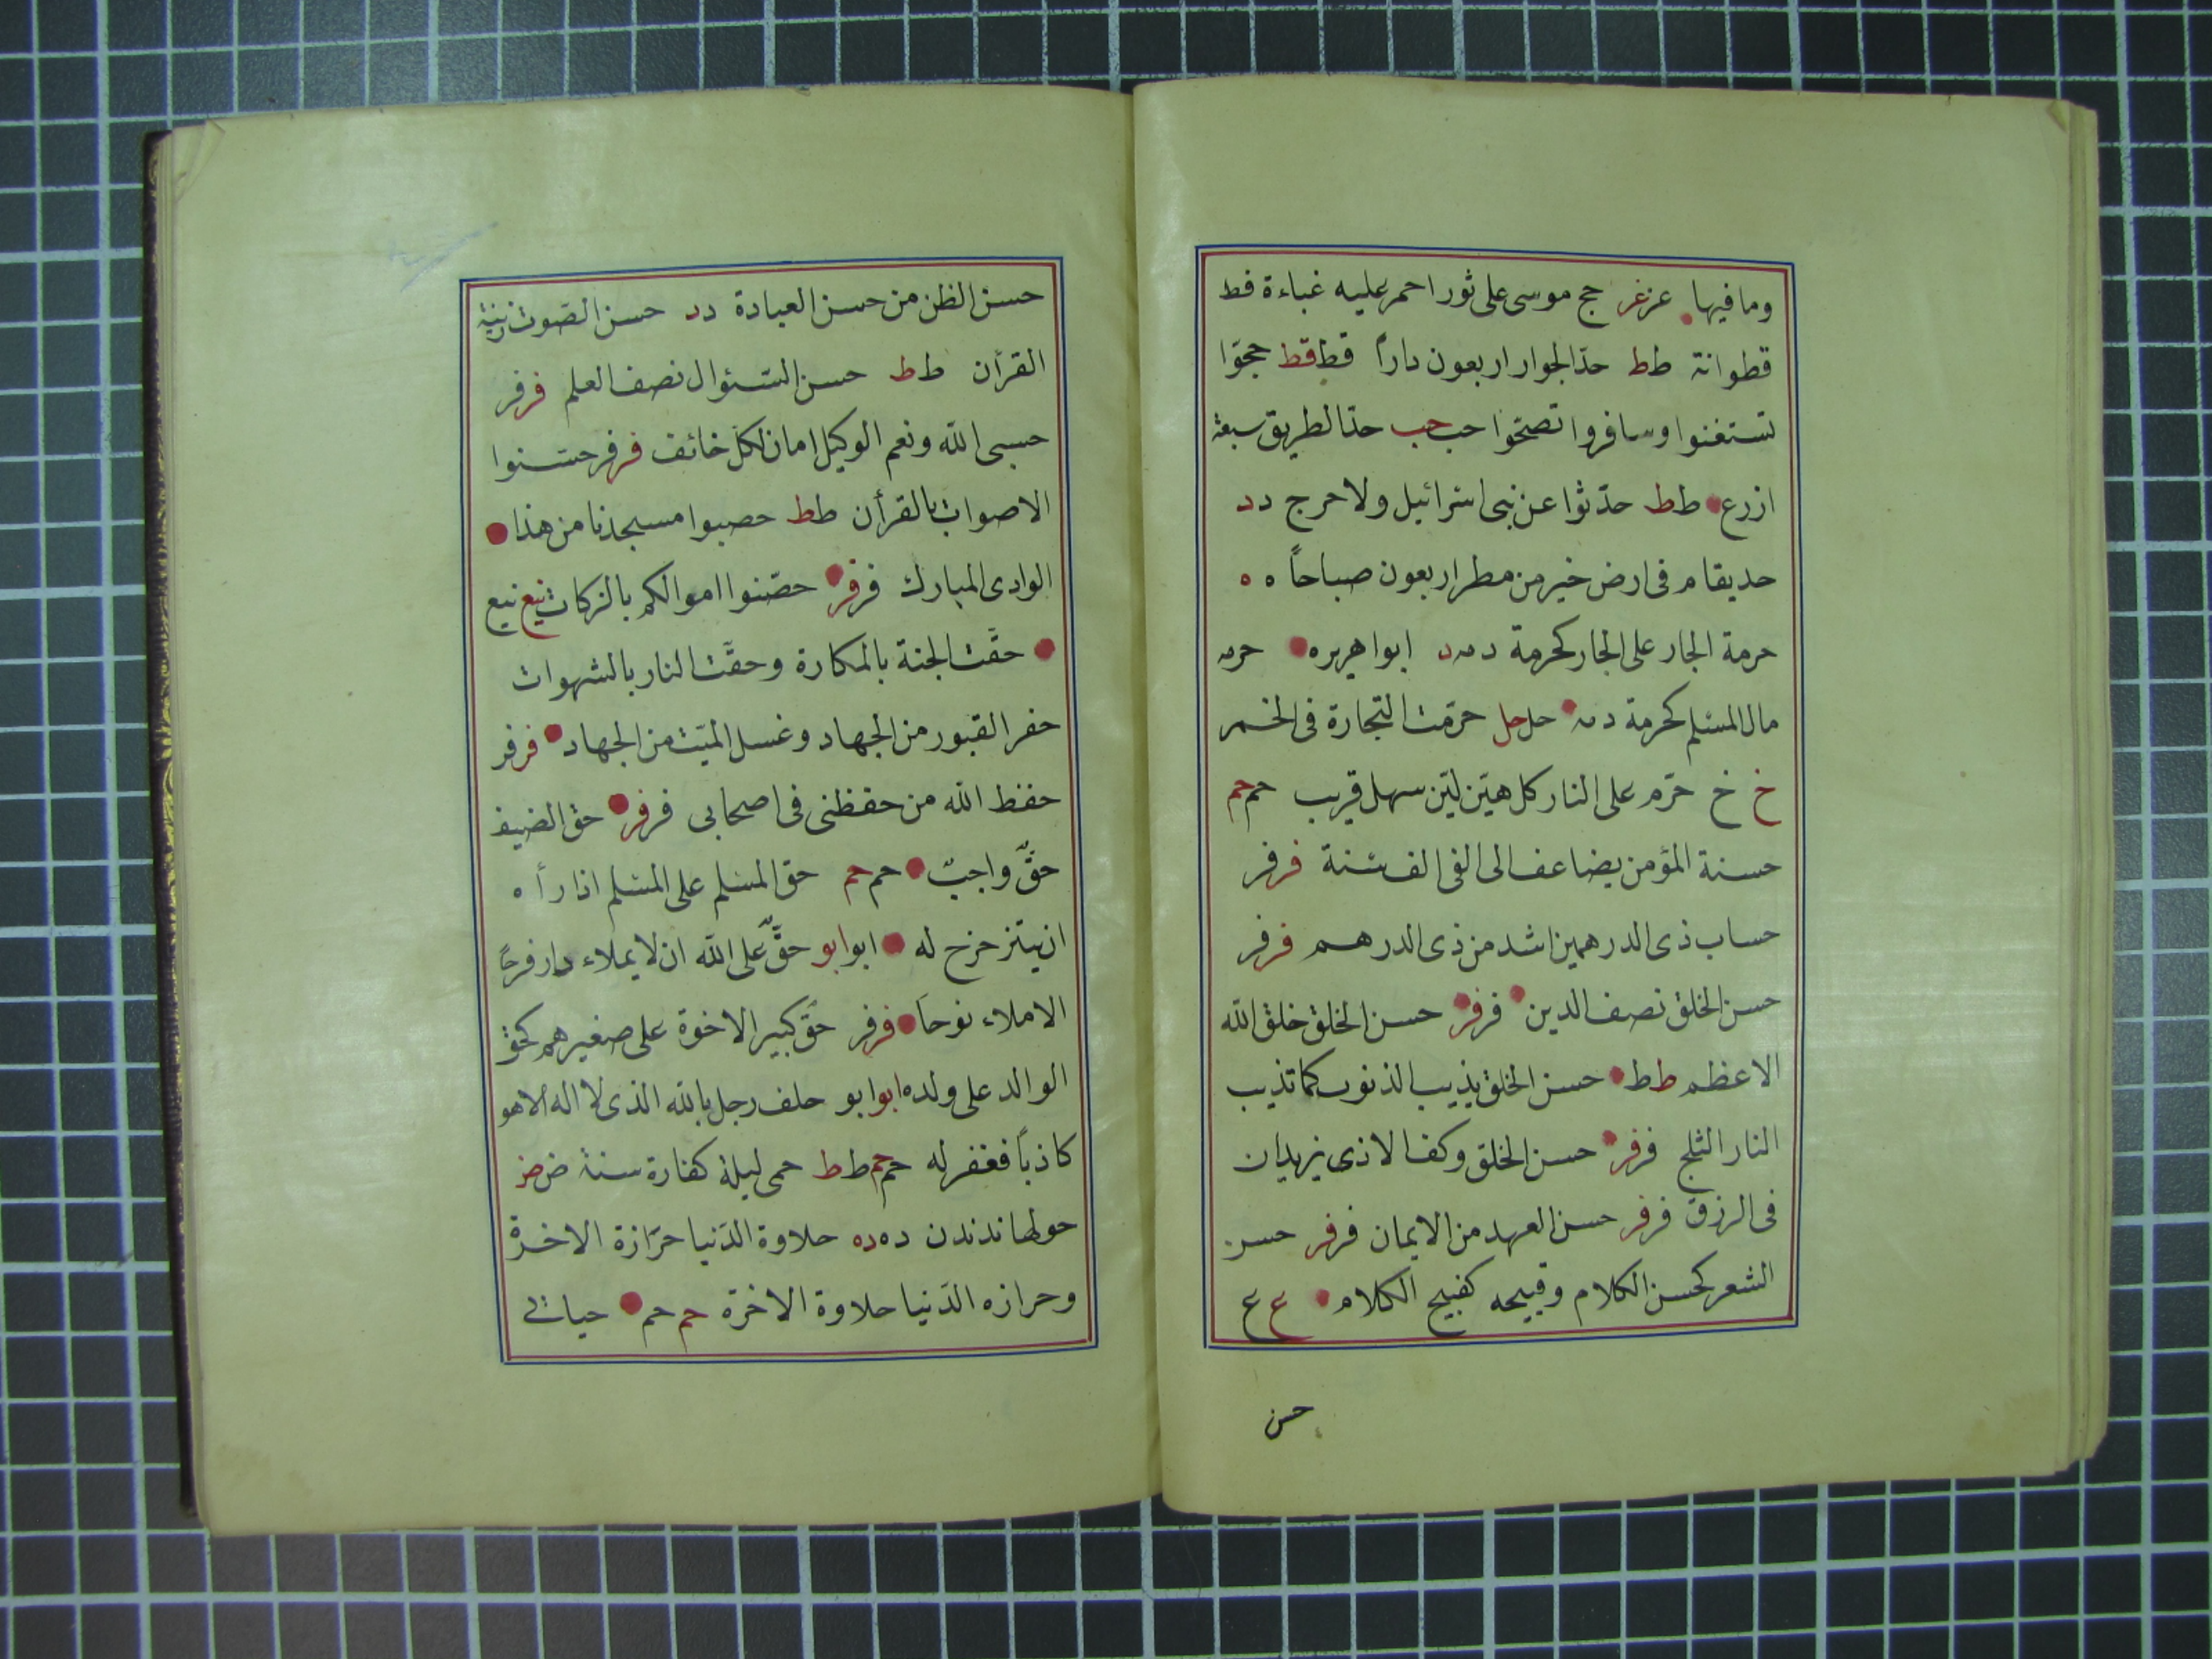 وما فيها عزغر حج موسى على ثور احمر عليه غباءة قط
قطوانة طط حدّ الجوار اربعون داراً قط قط حجوّا
تستغنوا وسافروا تصحّوا حب حب حدّ الطريق سبعة
ازرع طط حدّثوا عن بنى اسرائيل ولا حرج دد
حد يقام فى ارض خير من مطر اربعون صباحاً ه ه
حرمة الجار على الجار كحرمة دمه د ابوا هريره حرمه
مال المسلم كحرمة دمه حل حل حرّمت التجارة فى الخمر
خ خ حرّم على النار كل هيّن ليّن سهل قريب حم حم
حسنة المؤمن يضاعف الى الفى الف سنة فر فر
حساب ذى الدرهمين اشد من ذى الدرهم فر فر
حسن الخلق نصف الدين فر فر حسن الخلق خلق الله
الاعظم طط حسن الخلق يذيب الذنوب كما تذيب
النار الثلج فر فر حسن الخلق وكف الاذى يزيدان
فى الرزق فر فر حسن العهد من الايمان فر فر حسن
الشعر كحسن الكلام وقبيحه كقبيح الكلام ع ع
حسن
حسن الظن من حسن العبادة دد حسن الصّوت زينة
القرأن طط حسن السّئوال نصف العلم فر فر
حسبى الله ونعم الوكيل امان لكل خائف فر فر حسّنوا
الاصوات بالقرأن طط حصبوا مسجدنا من هذا
الوادى المبارك فر فر حصّنوا اموالكم بالزكات نيع نيع
حفّت الجنة بالمكارة وحفّت النار بالشهوات
حفر القبور من الجهاد وغسل الميّت من الجهاد فر فر
حفظ الله من حفظنى فى اصحابى فر فر حق الضيف
حقّ واجبٌ حم حم حق المسلم على المسلم اذا رأه
ان يتزحزح له ابو ابو حقٌّ على الله ان لا يملاء دار فرحاً
الا ملاء نوحاً فر فر حقّ كبير الاخوة على صغيرهم كحق
الوالد على ولده ابو ابو حلف رجل بالله الذى لا اله الا هو
كاذباً فغفر له حم حم طط حمى ليلة كفارة سنة ض ض
حولها ندندن ده ده حلاوة الدّنيا حرّازة الاخرة
وحرازه الدّنيا حلاوة الاخرة حم حم حياتى